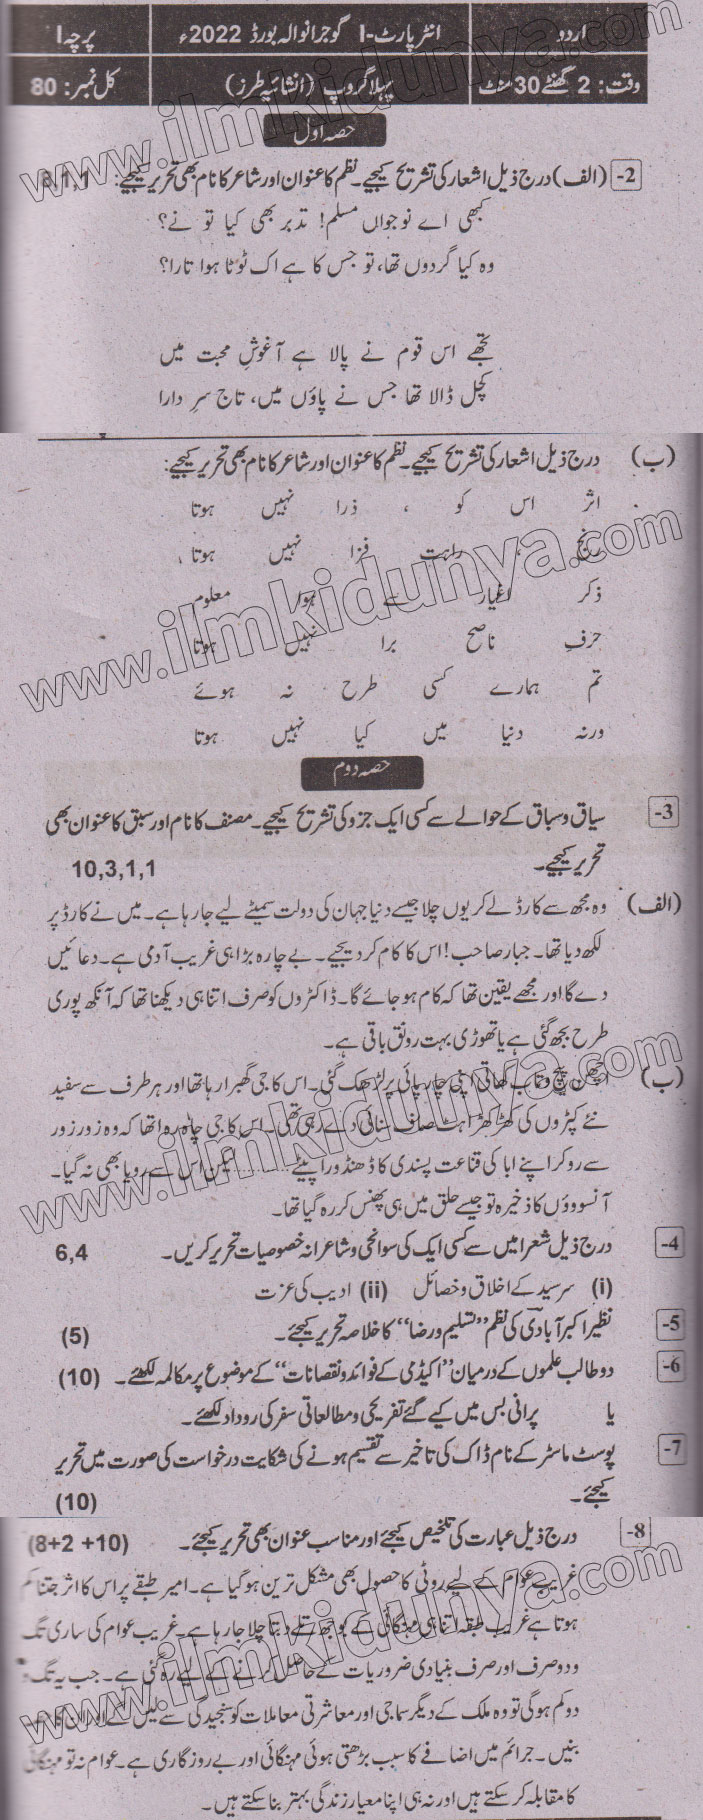 اردو انٹر پارٹ-I گوجرانوالہ بورڈ 2022ء پرچہ I
وقت: 2 گھنٹے 30 منٹ پہلا گروپ (انشائیہ طرز) کل نمبر: 80
حصہ اول
2- (الف) درج ذیل اشعار کی تشریح کیجیے۔ نظم کا عنوان اور شاعر کا نام بھی تحریر کیجیے: 8,1,1
کبھی اے نوجواں مسلم! تدبر بھی کیا تو نے؟
وہ کیا گردوں تھا، تو جس کا ہے اک ٹوٹا ہوا تارا؟
تجھے اس قوم نے پالا ہے آغوشِ محبت میں
کچل ڈالا تھا جس نے پاؤں میں، تاجِ سرِ دارا
(ب) درج ذیل اشعار کی تشریح کیجیے۔ نظم کا عنوان اور شاعر کا نام بھی تحریر کیجیے:
اثر اس کو ، ذرا نہیں ہوتا
رنج ، راحت فزا نہیں ہوتا
ذکر اغیار سے ہوا معلوم
حرفِ ناصح برا نہیں ہوتا
تم ہمارے کسی طرح نہ ہوئے
ورنہ دنیا میں کیا نہیں ہوتا
حصہ دوم
3- سیاق و سباق کے حوالے سے کسی ایک جزو کی تشریح کیجیے۔ مصنف کا نام اور سبق کا عنوان بھی
تحریر کیجیے۔ 10,3,1,1
(الف) وہ مجھ سے کارڈ لے کر یوں چلا جیسے دنیا جہان کی دولت سمیٹے لیے جا رہا ہے۔ میں نے کارڈ پر
لکھ دیا تھا۔ جبار صاحب! اس کا کام کر دیجیے۔ بے چارہ بڑا ہی غریب آدمی ہے۔ دعائیں
دے گا اور مجھے یقین تھا کہ کام ہو جائے گا۔ ڈاکٹروں کو صرف اتنا ہی دیکھنا تھا کہ آنکھ پوری
طرح بجھ گئی ہے یا تھوڑی بہت رونق باقی ہے۔
(ب) اچھن پیچ و تاب کھاتی اپنی چارپائی پر لڑھک گئی۔ اس کا جی گھبرا رہا تھا اور ہر طرف سے سفید
نئے کپڑوں کی کھڑکھڑاہٹ صاف سنائی دے رہی تھی۔ اس کا جی چاہ رہا تھا کہ وہ زور زور
سے رو کر اپنے ابا کی قناعت پسندی کا ڈھنڈورا پیٹے ............ لیکن اس سے رویا بھی نہ گیا۔
آنسوؤں کا ذخیرہ تو جیسے حلق میں ہی پھنس کر رہ گیا تھا۔
4- درج ذیل شعرا میں سے کسی ایک کی سوانحی و شاعرانہ خصوصیات تحریر کریں۔ 6,4
(i) سرسید کے اخلاق و خصائل (ii) ادیب کی عزت
5- نظیر اکبر آبادی کی نظم "تسلیم و رضا" کا خلاصہ تحریر کیجئے۔ (5)
6- دو طالب علموں کے درمیان "اکیڈمی کے فوائد و نقصانات" کے موضوع پر مکالمہ لکھئے۔ (10)
یا پرانی بس میں کیے گئے تفریحی و مطالعاتی سفر کی روداد لکھئے۔
7- پوسٹ ماسٹر کے نام ڈاک کی تاخیر سے تقسیم ہونے کی شکایت درخواست کی صورت میں تحریر
کیجئے۔ (10)
8- درج ذیل عبارت کی تلخیص کیجئے اور مناسب عنوان بھی تحریر کیجئے۔ (8+2 +10)
غریب عوام کے لیے روٹی کا حصول بھی مشکل ترین ہو گیا ہے۔ امیر طبقے پر اس کا اثر جتنا کم
ہوتا ہے غریب طبقہ اتنا ہی مہنگائی کے بوجھ تلے دبتا چلا جا رہا ہے۔ غریب عوام کی ساری تگ
و دو صرف اور صرف بنیادی ضروریات کے حاصل کرنے کے لیے رہ گئی ہے۔ جب یہ تگ و
دو کم ہو گی تو وہ ملک کے دیگر سماجی اور معاشرتی معاملات کو سنجیدگی سے لیں گے اور ان کا حصہ
بنیں۔ جرائم میں اضافے کا سبب بڑھتی ہوئی مہنگائی اور بے روزگاری ہے۔ عوام نہ تو مہنگائی
کا مقابلہ کر سکتے ہیں اور نہ ہی اپنا معیار زندگی بہتر بنا سکتے ہیں۔
www.ilmkidunya.com
www.ilmkidunya.com
www.ilmkidunya.com
www.ilmkidunya.com